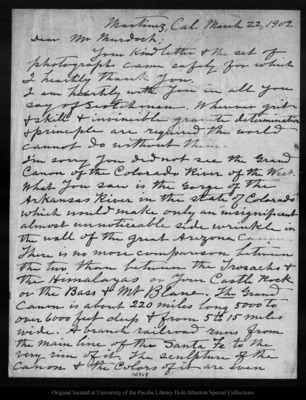 Martinez, Cal. March 22, 1902
Dear Mr Murdoch,
Your kind letter & the set of
photographs came safely for which
I heartily thank You.
I am heartily with You in all You
say of Scotchmen. Whenever grit
& skill & invincible granite determination
& principle are required the world
cannot do without them.
I'm sorry You did not see the Grand
Canon of the Colorado River of the West.
What You saw is the Gorge of the
Arkansas River in the state of Colorado
which would make only an insignificant
almost unnoticeable side wrinkle in
the wall of the great Arizona Canon
There is no more comparison between
the two, than between the Trosachs &
the Himalayas or Your Castle Rock
or the Bass & Mt Blanc. The Grand
Canon is about 220 miles long 5700 to
over 6000 feet deep & from 5 to 15 miles
wide. A branch railroad runs from
the main line of the Santa Fe to the
very rim of it. The sculpture of the
Canon & the Colors of it are even
Original located at University of the Pacific Library Holt-Atherton Special Collections